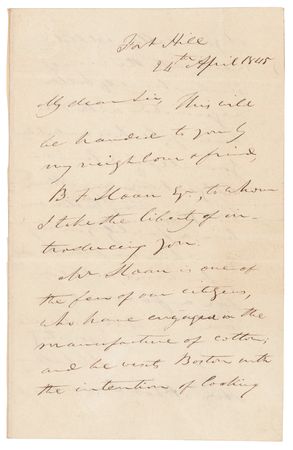 Fort Hill
24th April 1845
My dear Sir, This will
be handed to you by
my neighbour & friend,
B. F. Sloan Esqr, to whom
I take the liberty of in-
troducing you.
Mr Sloan is one of
the few of our citizens,
who have engaged in the
manufacture of cotton;
and he visits Boston with
the intention of looking